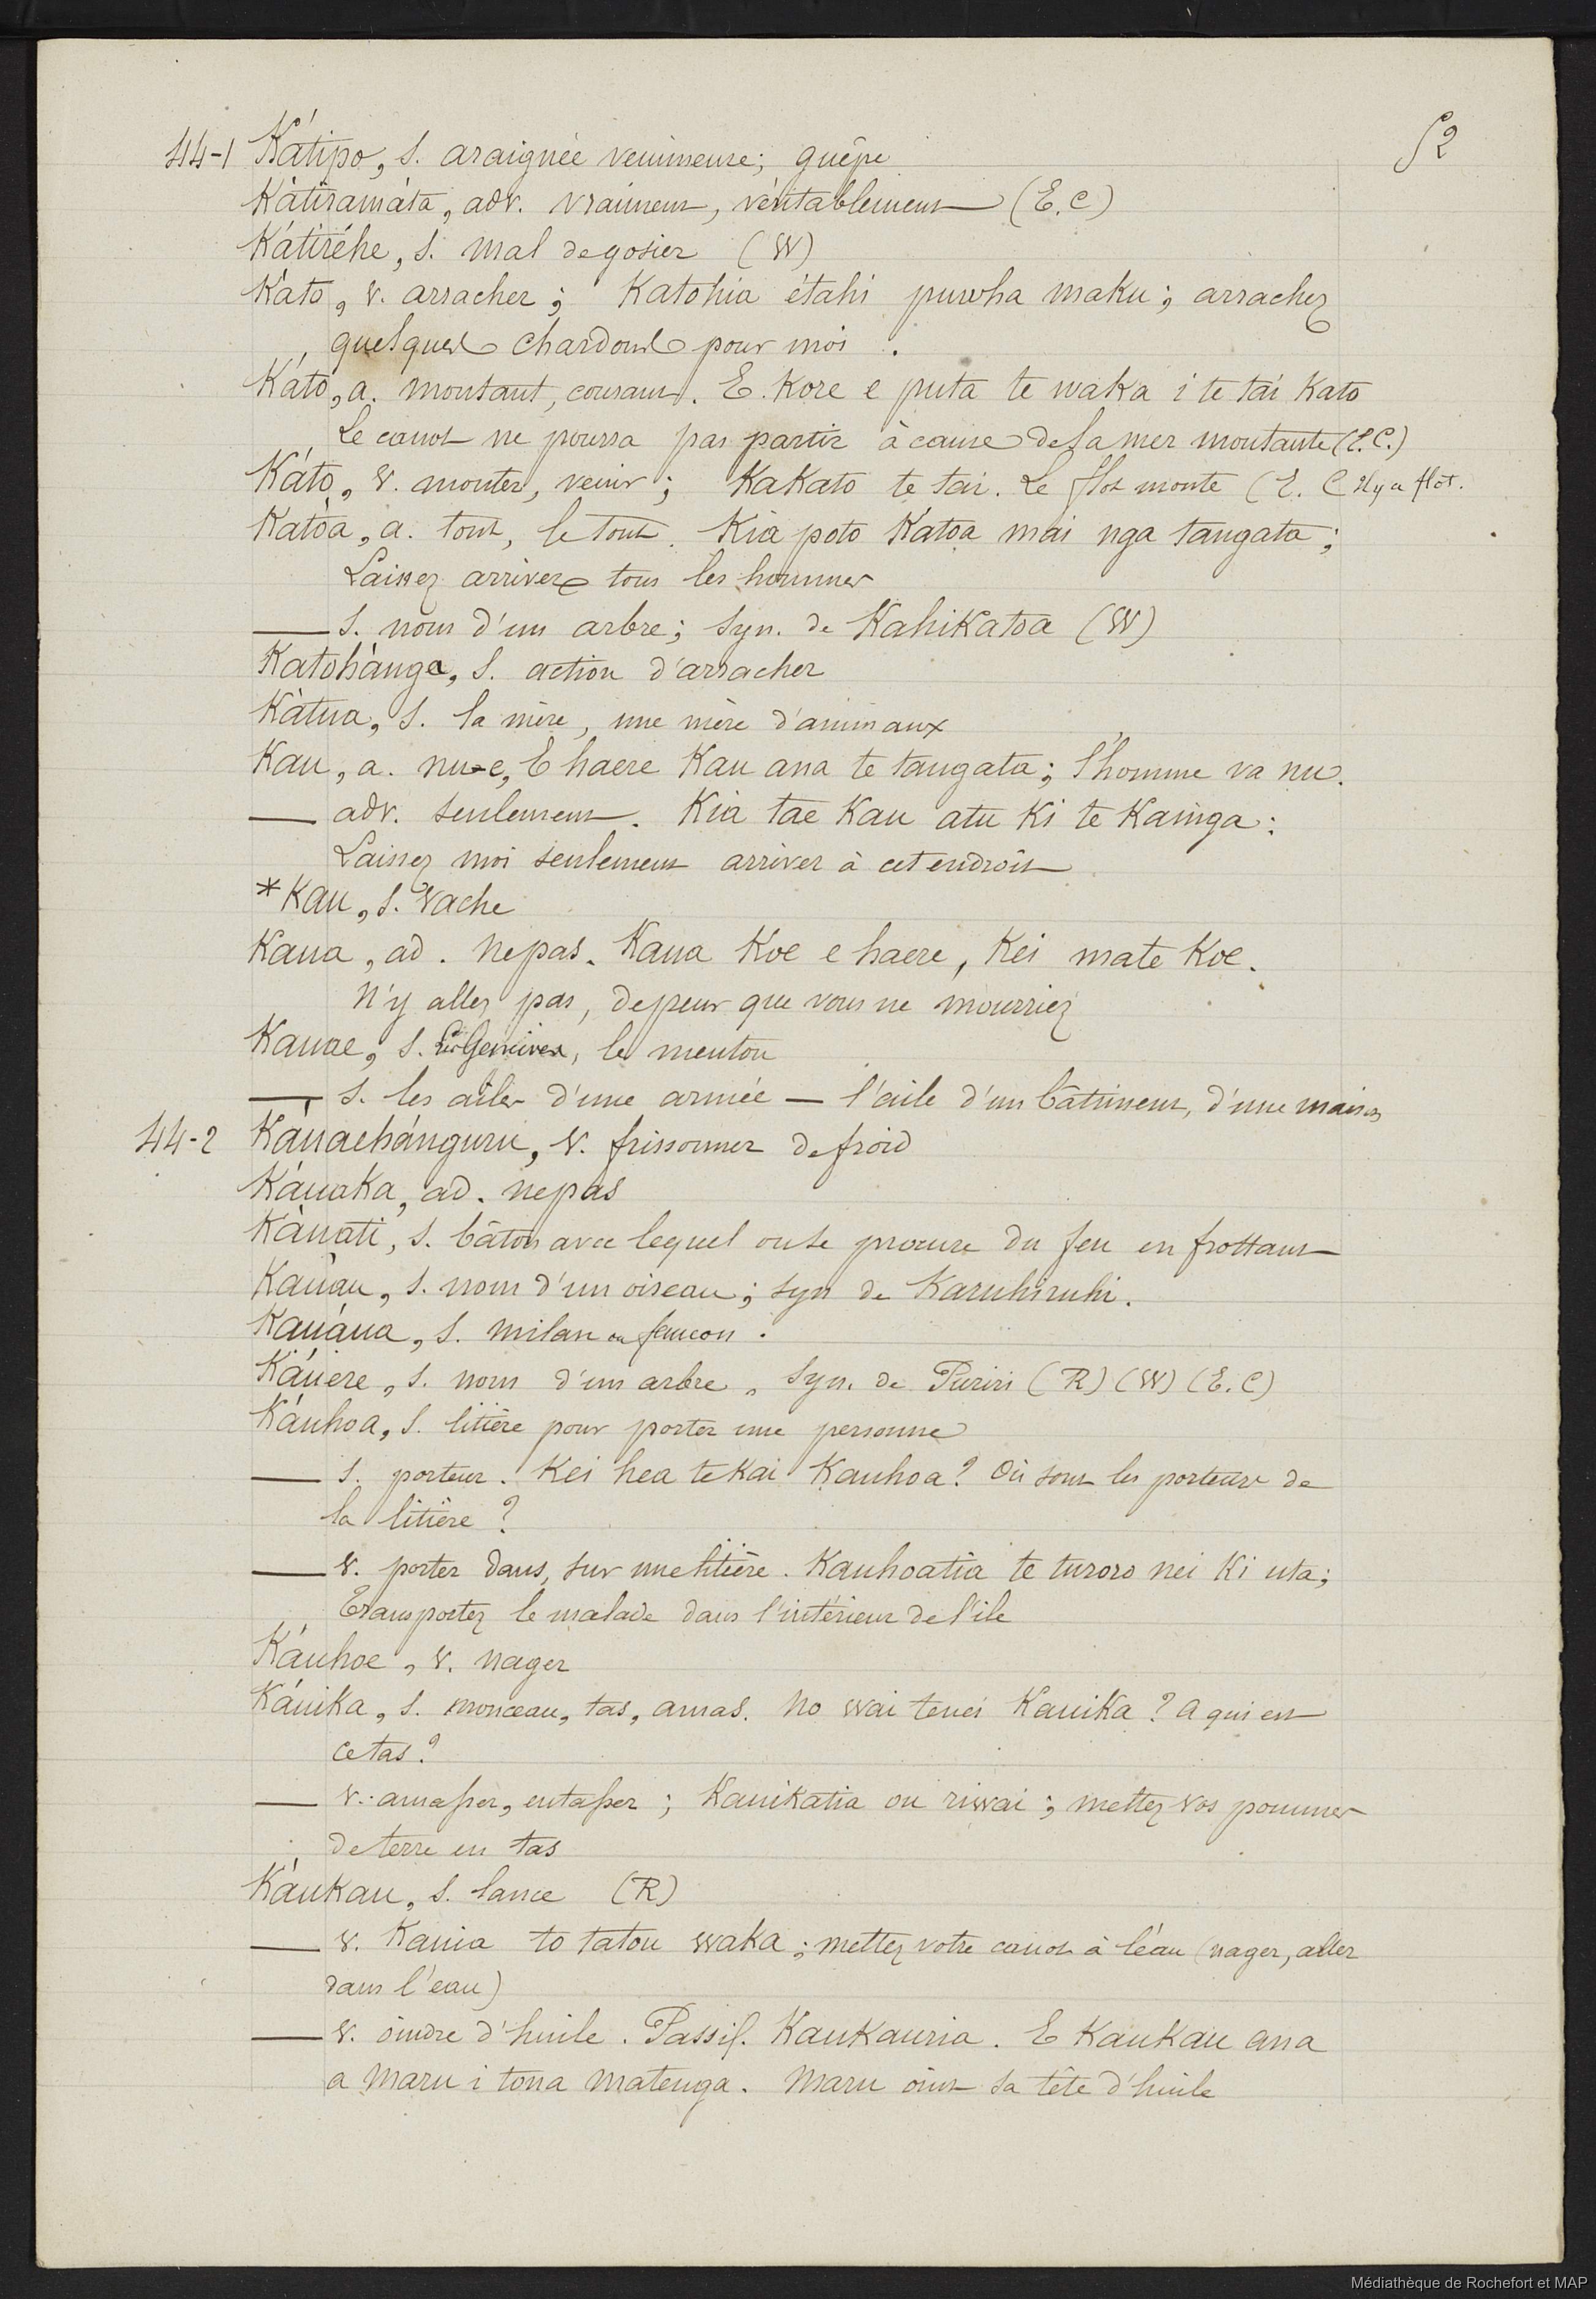 52
44-1 Kátipo, s. araignée venimeuse; guêpe
Kàtiramáta, adv. vraiment, véritablement (E.C)
Kátiréhe, s. mal de gosier (W)
Káto, v. arracher; Katohia étahi puwha maku; arrachez
quelques chardons pour moi.
Káto, a. montant, courant. E. Kore e puta te waka i te tai Kato
Le canot ne pourra pas partir à cause de la mer montante (E.C.)
Káto, v. monter, venir; KaKato te tai. Le flot monte (E. C Il y a flot.
Katòa, a. tout, le tout. Kia poto Katoa mai nga tangata;
Laissez arriver tous les hommes
— s. nom d'un arbre; syn. de KahiKatoa (W)
Katohànga, s. action d'arracher
Kàtua, s. la mère, une mère d'animaux
Kau, a. nu-e, E haere Kau ana te tangata; l'homme va nu.
— adv. seulement. Kia tae Kau atu Ki te Kainga:
Laissez moi seulement arriver à cet endroit
*Kau, s. vache
Kaua, ad. ne pas. Kaua Koe e haere, Kei mate Koe.
N'y allez pas, de peur que vous ne mourriez
Kauae, s. Les Gencives, le menton
— s. les ailes d'une armée — l'aile d'un bâtiment, d'une maison
44-2 Káuaehánguru, v. frissonner de froid
KáuaKa, ad. ne pas
Kàuati, s. bâton avec lequel on se procure du feu en frottant
Kauàu, s. nom d'un oiseau; syn de Karuhiruhi.
Kauáua, s. milan ou faucon.
Káuere, s. nom d'un arbre, syn. de Puriri (R) (W) (E.C)
Káuhoa, s. litière pour porter une personne
— s. porteur. Kei hea te Kai Kauhoa? Où sont les porteurs de
la litière?
— v. porter dans, sur une litière. Kauhoatia te turoro nei Ki uta;
Transportez le malade dans l'intérieur de l'ile
Káuhoe, v. nager
KáuiKa, s. monceau, tas, amas. No wai tenei KauiKa? A qui est
ce tas?
— v. amasser, entasser; Kauikatia ou riwai; mettez vos pommes
de terre en tas
KáuKau, s. lance (R)
— v. Kauia to tatou waka; mettez votre canot à l'eau (nager, aller
dans l'eau)
— v. oindre d'huile. Passif. KauKauria. E KauKau ana
a Maru i tona matenga. Maru oint sa tête d'huile
Médiathèque de Rochefort et MAP